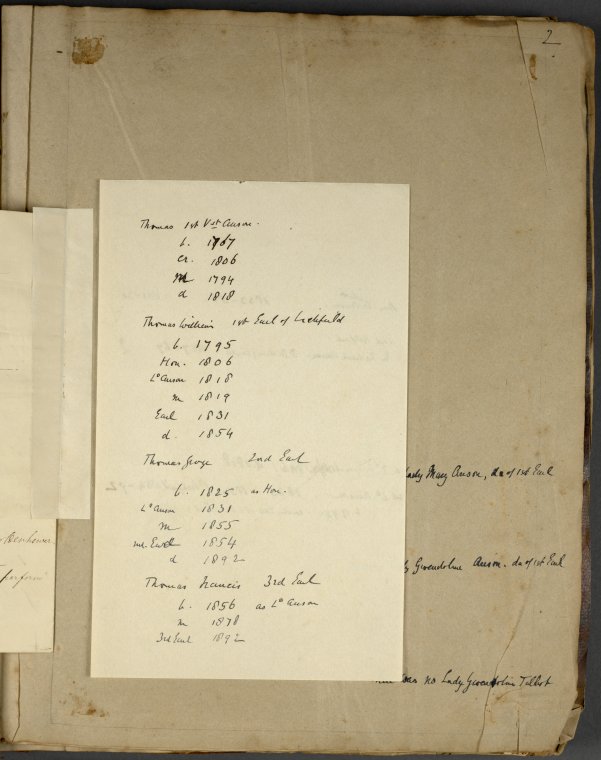 2
Thomas 1st Vst Anson.
b. 1767
cr. 1806
m 1794
d 1818
Thomas William 1st Earl of Lichfield
b. 1795
Hon. 1806
Ld Anson 1818
m 1819
Earl 1831
d. 1854
Thomas George 2nd Earl
b. 1825 as Hon.
Ld Anson 1831
m 1855
Earl 1854
d 1892
Thomas Francis 3rd Earl
b. 1856 as Ld Anson
m 1878
3rd Earl 1892
Lady Mary Anson, da of 1st Earl
Gwendoline Anson. da of 1st Earl
was no Lady Gwendoline Talbot
perform